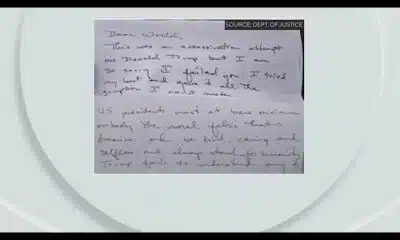 SOURCE: DEPT. OF JUSTICE
Dear World,
This was an assassination attempt
on Donald Trump but I am
so sorry I failed you. I tried
my best and gave it all the
gumption I could muster
US presidents must at bare minimum
embody the moral fabric that is
America and be kind, caring and
selfless and always stand for humanity
Trump fails to understand any of